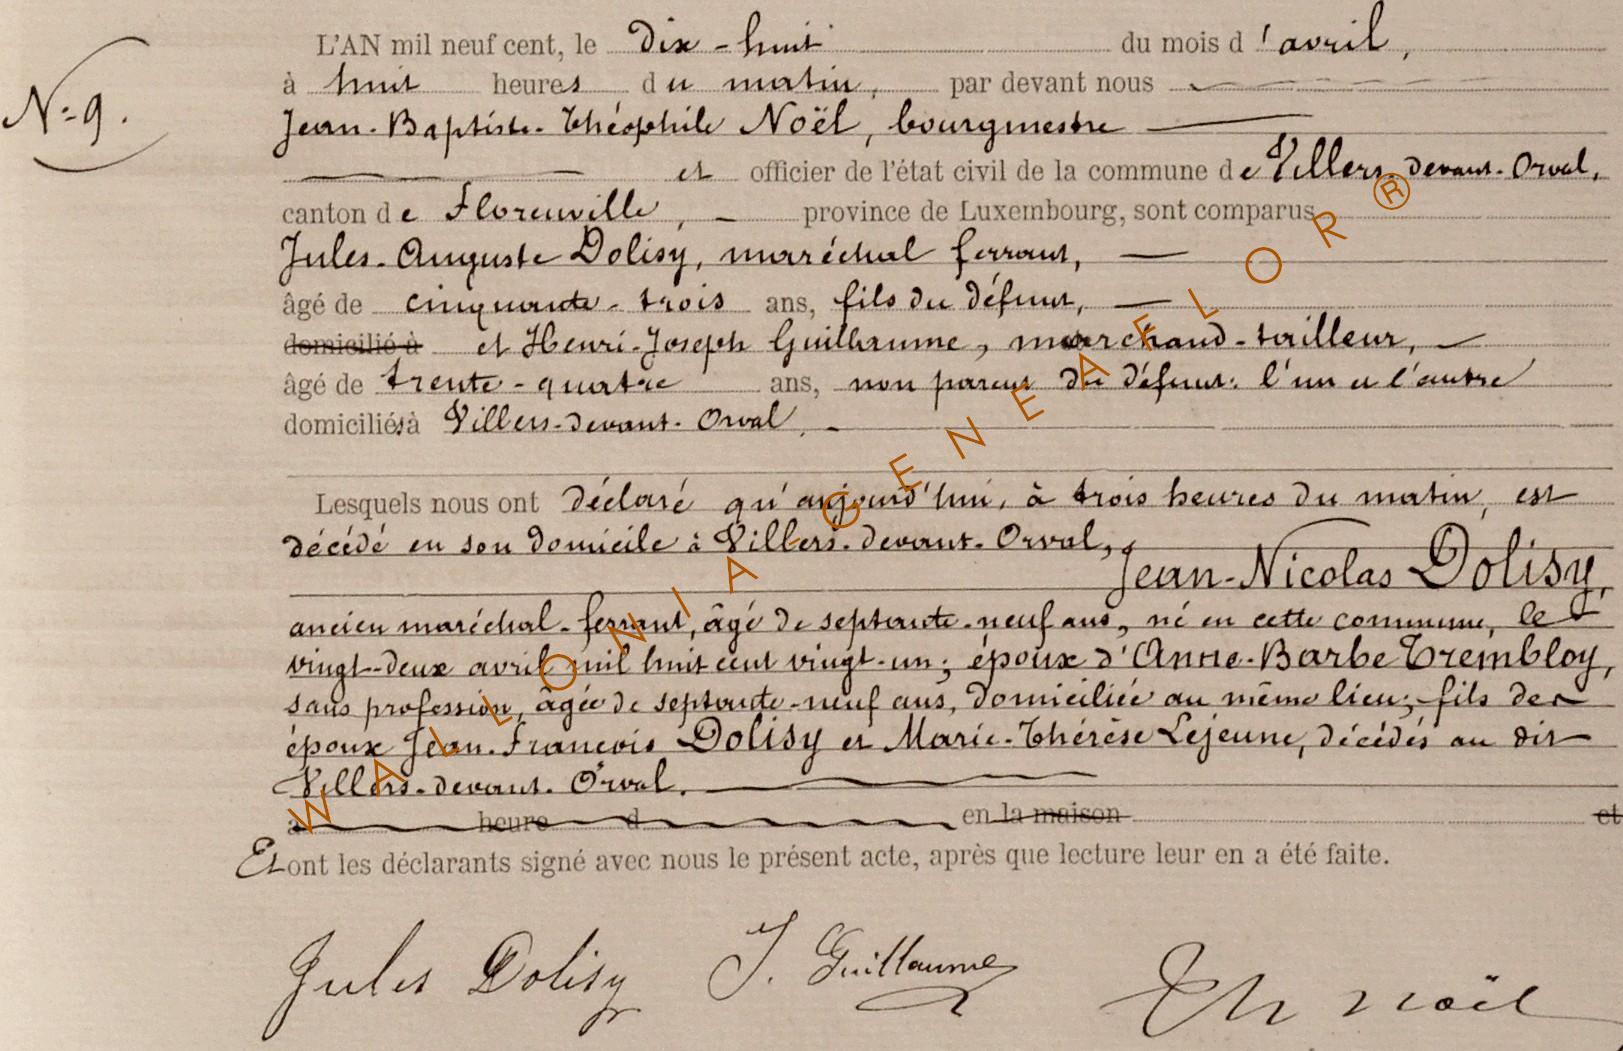 N° 9.
L'AN mil neuf cent, le dix-huit du mois d'avril,
à huit heures du matin, par devant nous
Jean-Baptiste-Théophile Noël, bourgmestre
et officier de l'état civil de la commune de Villers-devant-Orval,
canton de Florenville, province de Luxembourg, sont comparus
Jules-Auguste Dolisy, maréchal ferrant,
âgé de cinquante-trois ans, fils du défunt,
domicilié à et Henri-Joseph Guillaume, marchand-tailleur,
âgé de trente-quatre ans, non parent du défunt: l'un et l'autre
domiciliés à Villers-devant-Orval.
Lesquels nous ont déclaré qu'aujourd'hui, à trois heures du matin, est
décédé en son domicile à Villers-devant-Orval,
Jean-Nicolas Dolisy,
ancien maréchal-ferrant, âgé de septante-neuf ans, né en cette commune, le
vingt-deux avril mil huit cent vingt-un; époux d'Anne-Barbe Trembloy,
sans profession, âgée de septante-neuf ans, domiciliée au même lieu; fils des
époux Jean-François Dolisy et Marie-Thérèse Lejeune, décédés au dit
Villers-devant-Orval.
à heure d en la maison et
Et ont les déclarants signé avec nous le présent acte, après que lecture leur en a été faite.
Jules Dolisy J. Guillaume Th Noël
WALLONIA GENEAFLOR ®